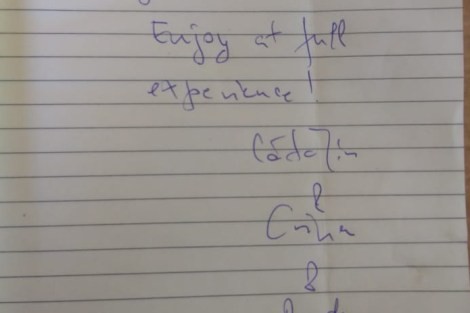 Enjoy at full
experience!
Cătălin
&
Crina
&